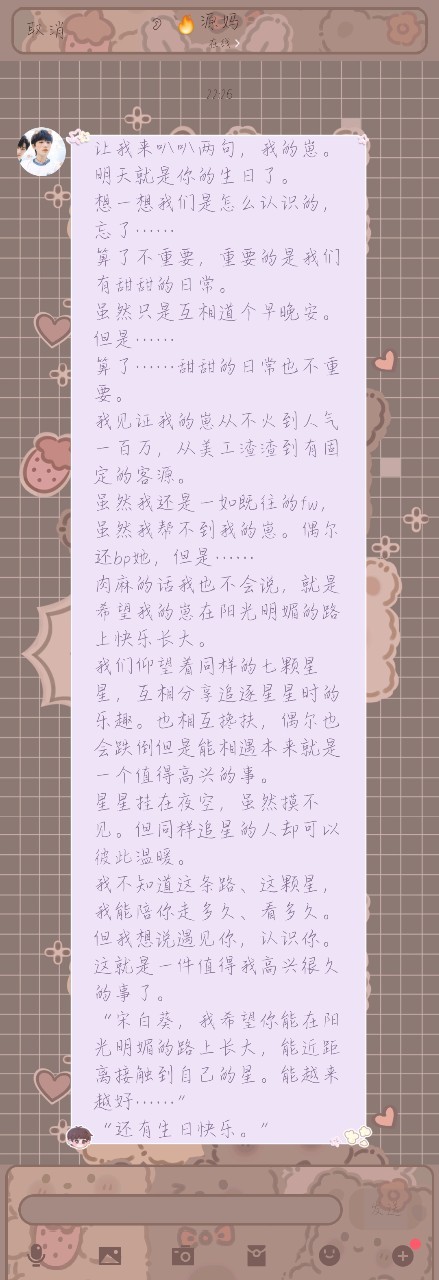 取消
② 🔥源妈
在线>
22:26
让我来叭叭两句，我的崽。
明天就是你的生日了。
想一想我们是怎么认识的，
忘了……
算了不重要，重要的是我们
有甜甜的日常。
虽然只是互相道个早晚安。
但是……
算了……甜甜的日常也不重
要。
我见证我的崽从不火到人气
一百万，从美工渣渣到有固
定的客源。
虽然我还是一如既往的fw，
虽然我帮不到我的崽。偶尔
还bp她，但是……
肉麻的话我也不会说，就是
希望我的崽在阳光明媚的路
上快乐长大。
我们仰望着同样的七颗星
星，互相分享追逐星星时的
乐趣。也相互搀扶，偶尔也
会跌倒但是能相遇本来就是
一个值得高兴的事。
星星挂在夜空，虽然摸不
见。但同样追星的人却可以
彼此温暖。
我不知道这条路、这颗星，
我能陪你走多久、看多久。
但我想说遇见你，认识你。
这就是一件值得我高兴很久
的事了。
“宋白葵，我希望你能在阳
光明媚的路上长大，能近距
离接触到自己的星。能越来
越好……”
“还有生日快乐。”